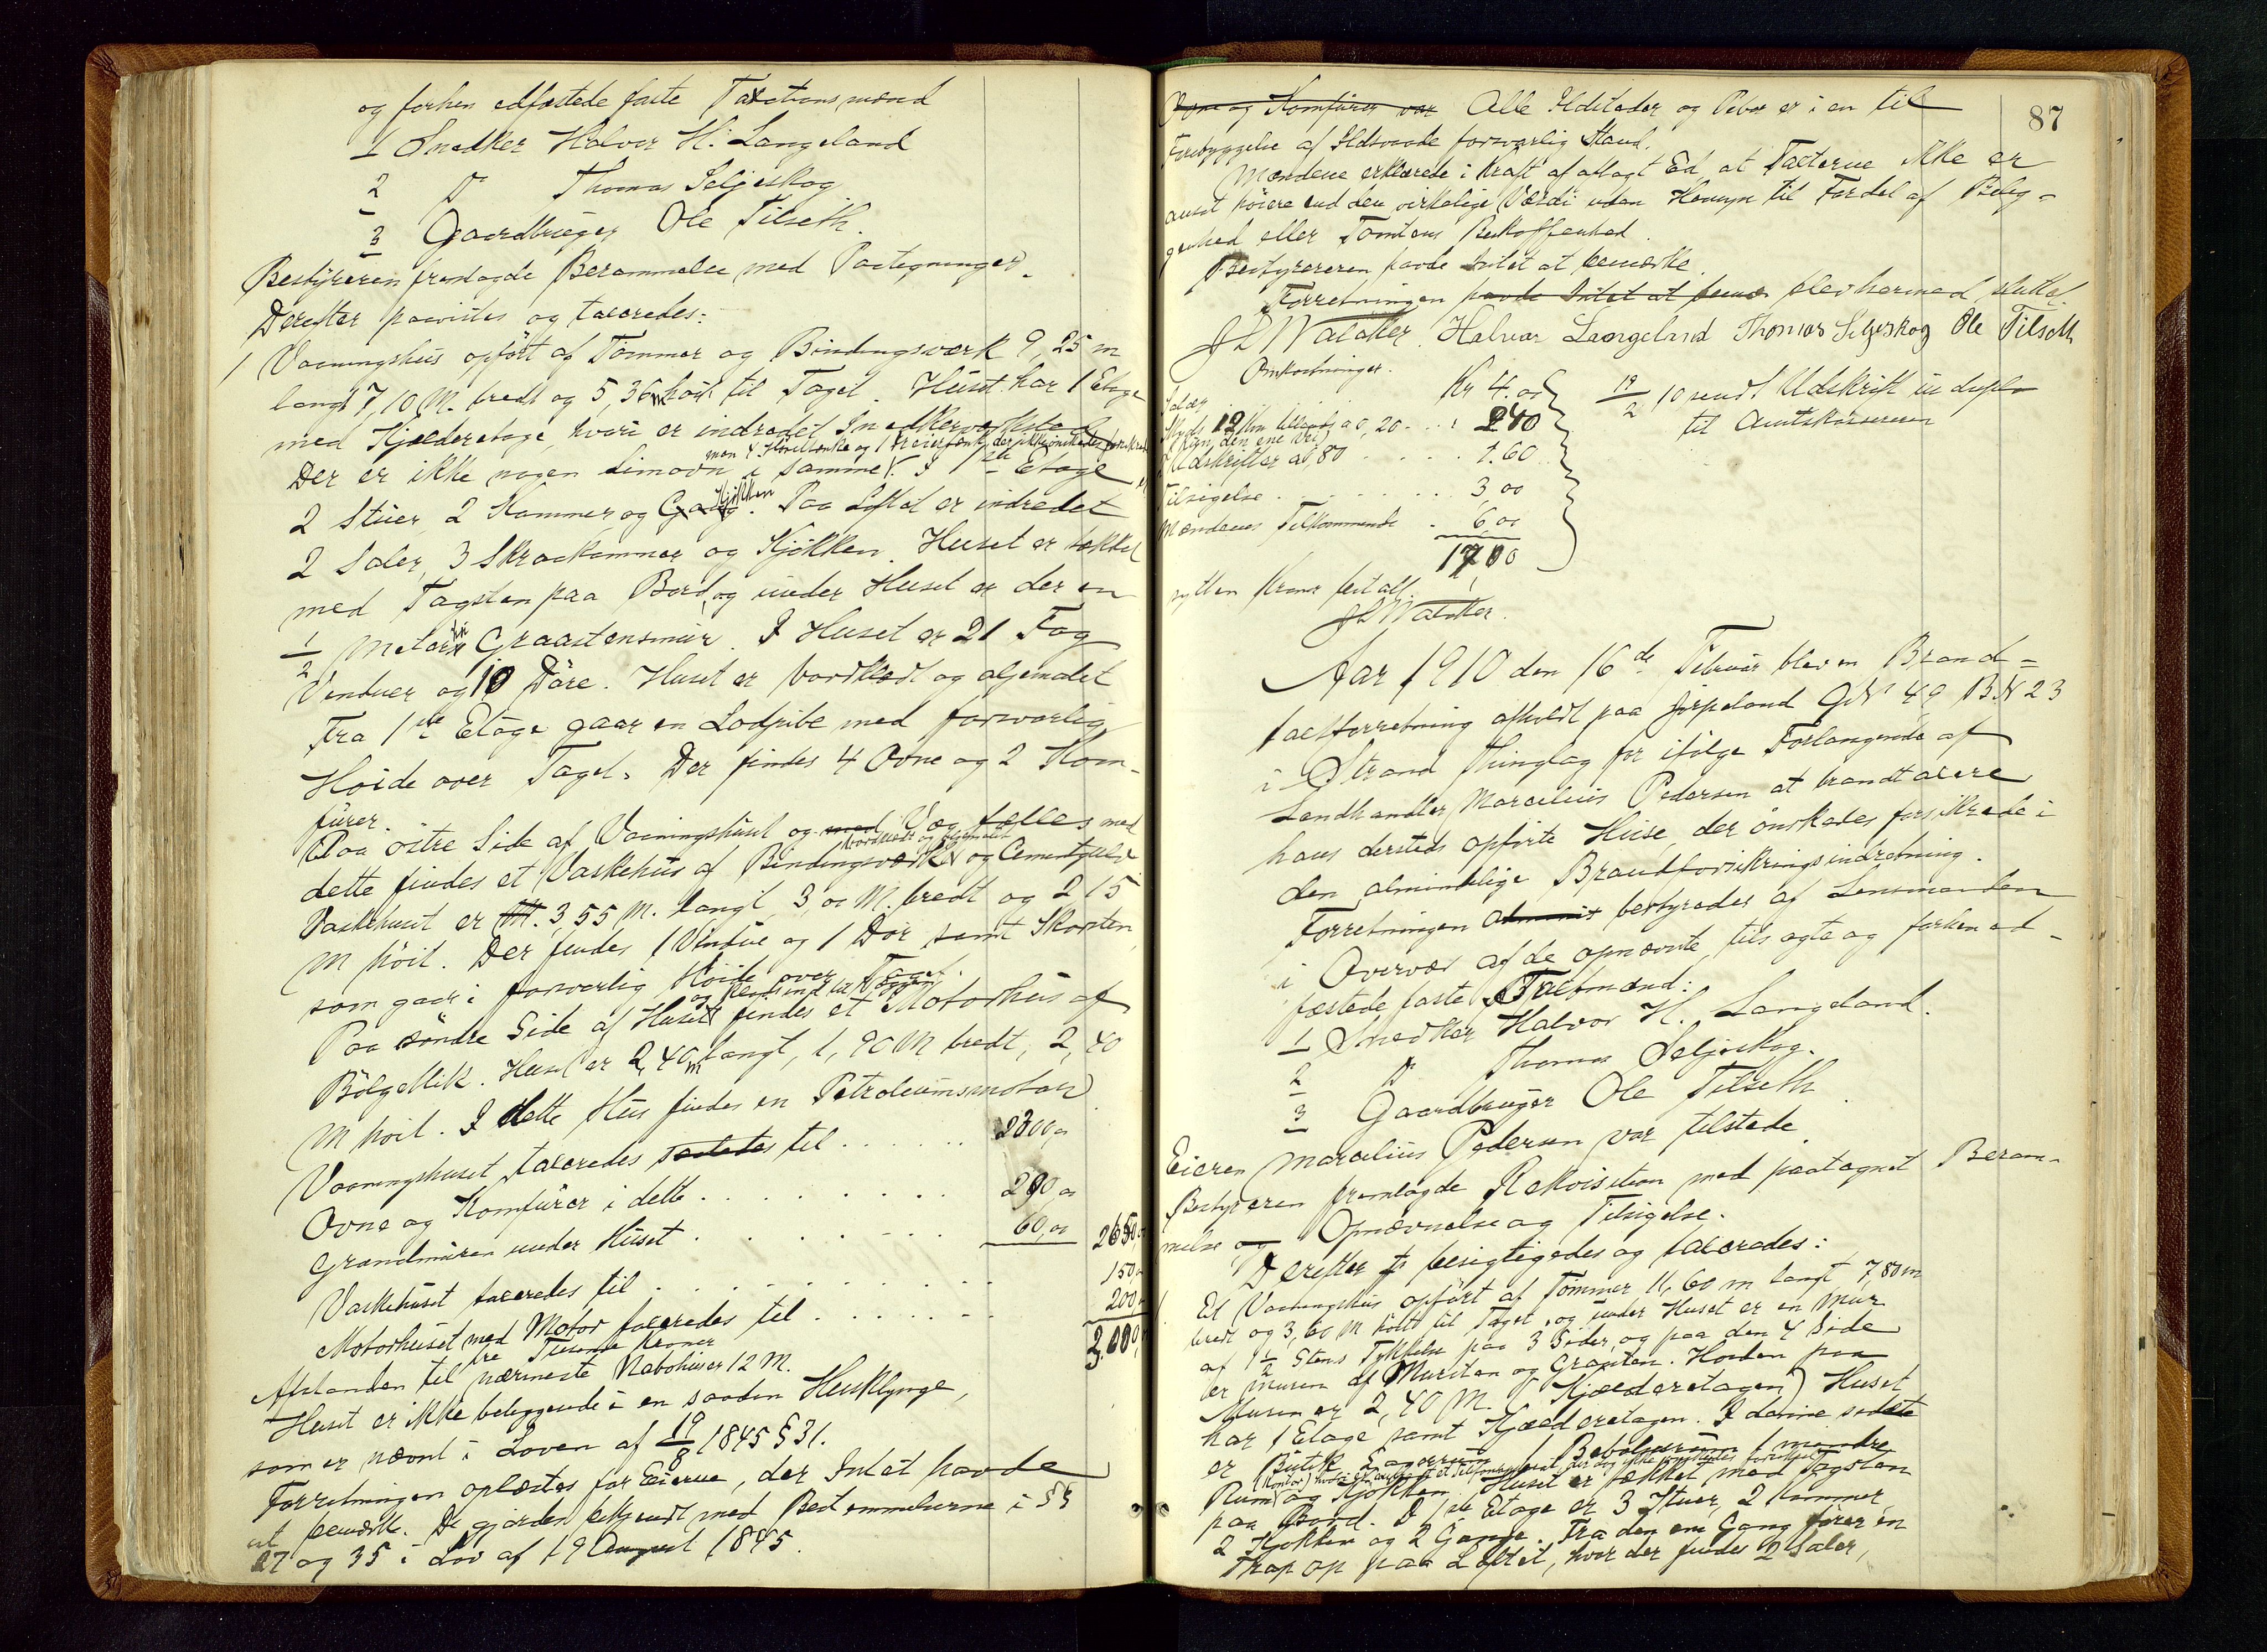 og forhen edfæstede faste Taxationsmænd
1 Snedker Halvor H. Langeland
2 D Thomas Seljeskog
3 Gaardbruger Ole Tilseth.
Bestyreren fremlagde Berammelse med Paategninger.
Derefter paavistes og taxeredes:
1 Vaaningshus opført af Tømmer og Bindingsværk 9,25 m
langt 7,10 M. bredt og 5,36 m høit til Taget. Huset har 1 Etage
med Kjælderetage, hvori er indredet Snedkerværksted
men 4 Høvelbænke og 1 Dreierbænk, der ikke ønskedes forsikret
Der er ikke nogen Limovn i samme. I 1ste Etage er
2 Stuer, 2 Kammer og Gang Kjøkken. Paa Loftet er indredet
2 Saler, 3 Skraakammer og Kjøkken. Huset er tækket
med Tagsten paa Bord, og under Huset er der en
1/2 Meters Graastensmur. I Huset er 21 Fag
Vinduer og 10 Døre. Huset er bordklædt og oljemalet
Fra 1ste Etage gaar en Lodpibe med forsvarlig
Høide over Taget. Der findes 4 Ovne og 2 Kom-
fürer.
Paa østre Side af Vaaningshuset og med Væg fælles med
bordklædt og oljemalet
dette findes et Vaskehus af Bindingsværk og Cementgulv
Vaskehuset er M. 3,55 M. langt 3,00 M. bredt og 2,15
M høit. Der findes 1 Vindue og 1 Dør samt Skorsten
som gaar i forsvarlig Høide over Taget.
Paa søndre Side af Huset findes et Motorhus af
Bølgeblik. Huset er 2,40 m langt, 1,90 M bredt, 2,40
M høit. I dette Hus findes en Petroleumsmotor
Vaaningshuset taxeredes til . . . . . 2300,00
Ovne og Komfürer i dette . . . . . . 290,00
Grundmuren under Huset . . . . . 60,00 2650,00
Vaskehuset taxeredes til . . . . . . 150,00
Motorhuset med Motor taxeredes til . . . . . 200,00
tre Tusende Kroner 3.000,
Afstanden til nærmeste Nabohus er 12 M.
Huset er ikke beliggende i en saadan Husklynge,
som er nævnt i Loven af 19/8 1845 § 31.
Forretningen oplæstes for Eierne, der Intet havde
at bemærke. De gjordes bekjendt med Bestemmelserne i §§
27 og 35 i Lov af 19 August 1845.
87
Ovne og Komfürer var Alle Ildsteder og Piber er i en til
Forebyggelse af Ildsvaade forsvarlig Stand.
Mændene erklærede i Kraft af aflagt Ed, at Taxterne ikke er
ansat høiere end den virkelige Værdi uden Hensyn til Fordel af Belig-
genhed eller Tomtens Beskaffenhed.
Bestyreren havde Intet at bemærke.
Forretningen havde Intet at bemær blev hermed sluttet.
Halvar Langeland Thomas Seljeskog Ole Tilseth
Omkostninger.
Salær . . . Kr 4.00
Skyds 12 Km a 0,20 . . : 2 40
(Kun den ene Vei)
2 Udskrifter a 0,80 . . . . . 1.60
Tilsigelse . . . . . . . 3,00
Mændenes Tilkommende . 6,00
17,00
19/2 10 sendt Udskrift in duplo
til Amtskassereren
sytten Kroner betalt.
Aar 1910 den 16de Februar blev en Brand-
taxtforretning afholdt paa Jørpeland GN 49 BN 23
i Strand Thinglag for ifølge Forlangende af
Landhandler Marcelius Pedersen at brandtaxere
hans dersteds opførte Huse, der ønskedes forsikrede i
den almindelige Brandforsikringsindretning.
Forretningen bestyredes af Lensmanden
i Overvær af de opnævnte, tilsagte og forhen ed-
fæstede faste Taxtmænd:
1 Snedker Halvor H. Langeland.
2 D Thomas Seljeskog.
3 Gaardbruger Ole Tilseth
Eieren Marcelius Pedersen var tilstede.
Bestyreren fremlagde Rekvisition med paategnet Beram-
melse og Opnævnelse og Tilsigelse.
Derefter besigtigedes og taxeredes:
1 Et Vaaningshus opført af Tømmer 11,60 m langt 7,80 m
bredt og 3,60 M høit til Taget, og under Huset er en Mur
af 1 1/2 Stens Tykkelse paa 3 Sider, og paa den 4 Side
er Muren af Mursten og Graasten. Høiden paa
Muren er 2,40 M. (Kjælderetagen) Huset
har 1 Etage samt Kjælderetagen. I denne sidste
er Butik, Lagerrum, 1 Beboelsesrum 1 mindre
Rum og Kjøkken. Huset er tækket med Tagsten
paa Bord. I 1ste Etage er 3 Stuer, 2 Kammer
2 Kjøkken og 2 Gange. Fra den ene Gang fører en
Trap op paa Loftet, hvor der findes 2 Saler,